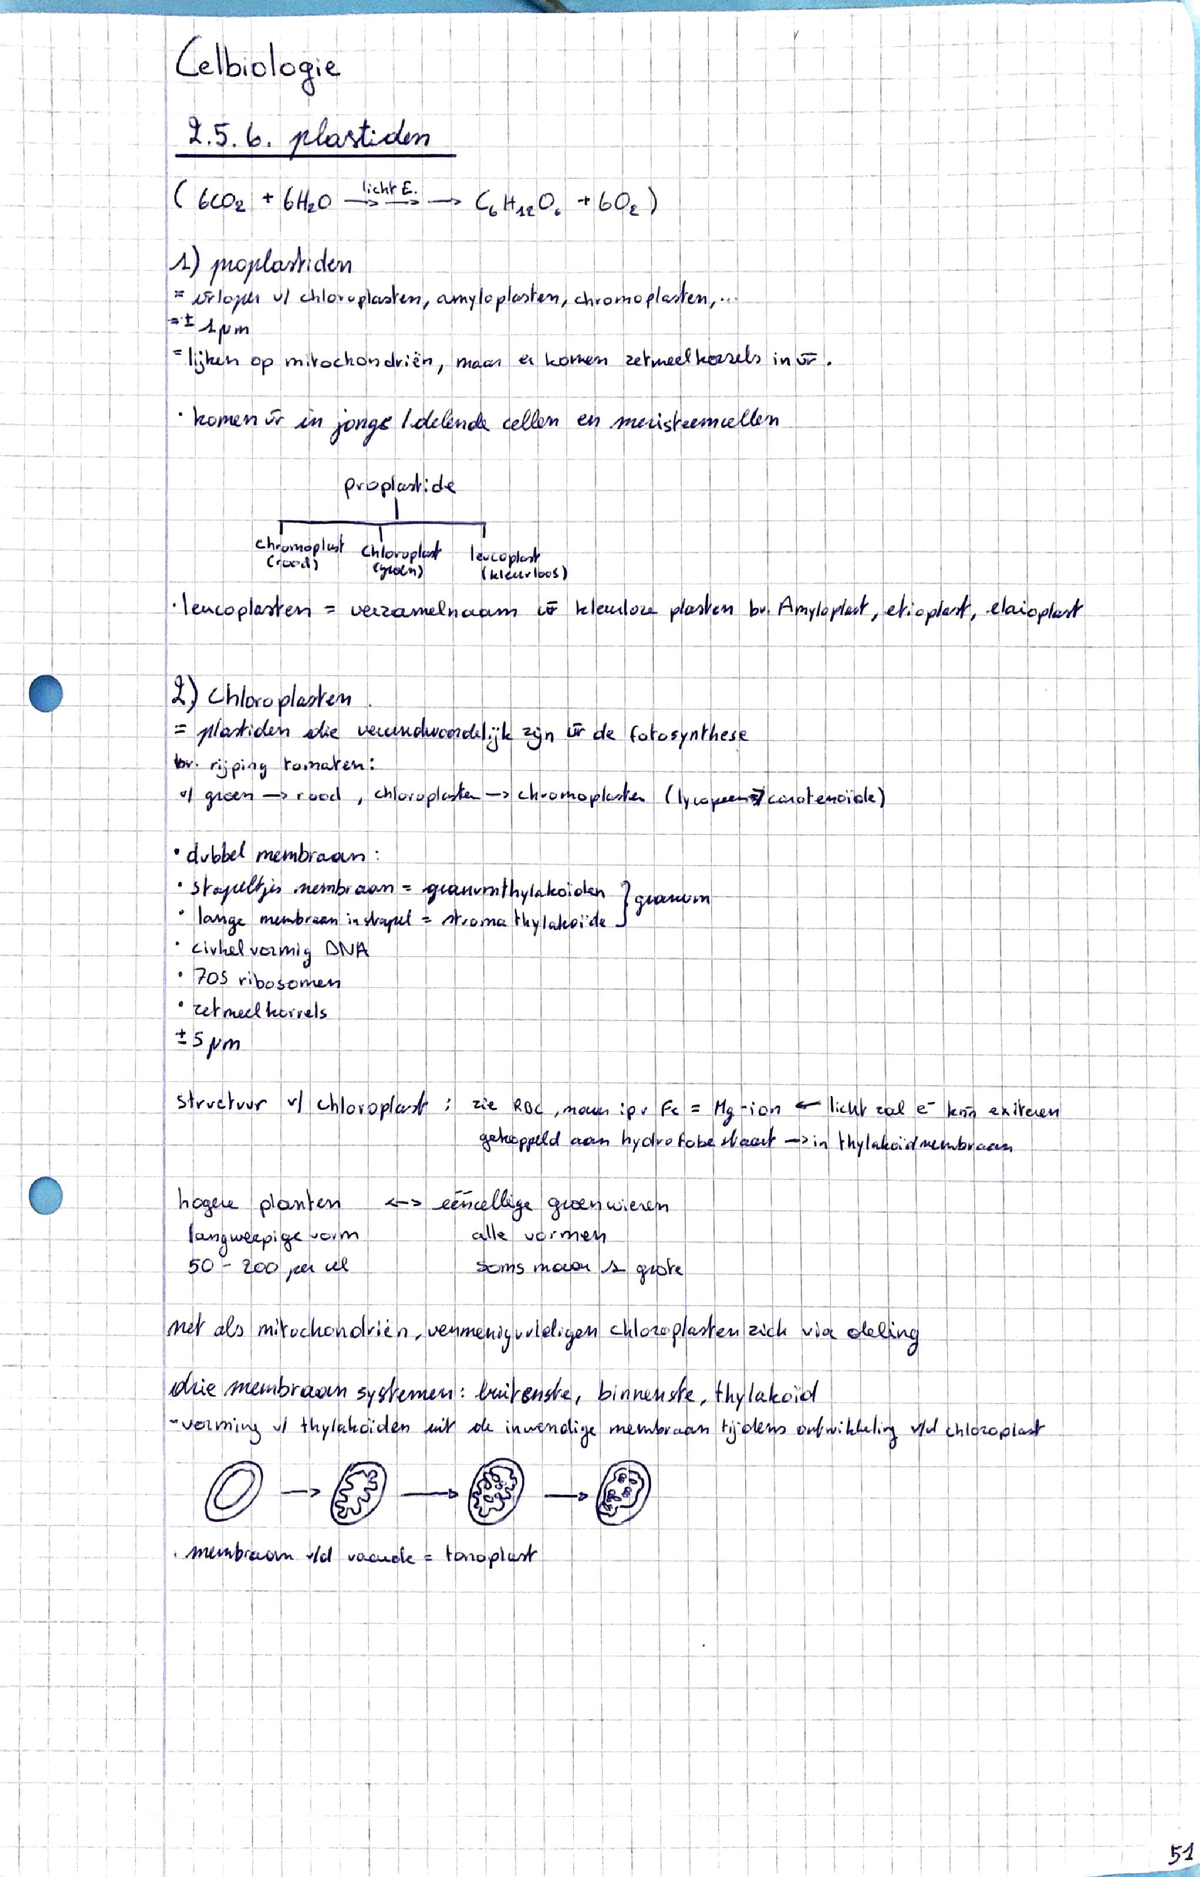 Celbiologie
2.5.6. plastiden
( 6CO₂ + 6H₂O licht E. → → → C₆H₁₂O₆ + 6O₂ )
1) proplastiden
= v̄rloper v/ chloroplasten, amyloplasten, chromoplasten,...
= ± 1 µm
= lijken op mitochondriën, maar er komen zetmeelkorrels in v̄r.
· komen v̄r in jonge / delende cellen en meristeemcellen
proplastide
chromoplast chloroplast leucoplast
(rood) (groen) (kleurloos)
· leucoplasten = verzamelnaam v̄r kleurloze plasten bv. Amyloplast, etioplast, elaioplast
2) Chloroplasten
= plastiden die verandwoordelijk zijn v̄r de fotosynthese
bv. rijping tomaten:
v/ groen → rood, chloroplasten → chromoplasten (lycopeen → carotenoïde)
• dubbel membraan:
• stapeltjes membraan = granumthylakoïden } granum
• lange membraan in stapel = stroma thylakoïde
• cirkelvormig DNA
• 70S ribosomen
• zetmeelkorrels
± 5 µm
structuur v/ chloroplast : zie RBC, maar ipv Fe = Mg-ion ← licht zal e⁻ knn exiteren
gekoppeld aan hydrofobe staart → in thylakoïdmembraan
hogere planten <-> eéncellige groenwieren
langwerpige vorm alle vormen
50 - 200 per cel soms maar 1 grote
net als mitochondriën, vermenigvuldigen chloroplasten zich via deling
drie membraan systemen: buitenste, binnenste, thylakoïd
- vorming v/ thylakoïden uit de inwendige membraan tijdens ontwikkeling v/d chloroplast
· membraan v/d vacuole = tonoplast
51